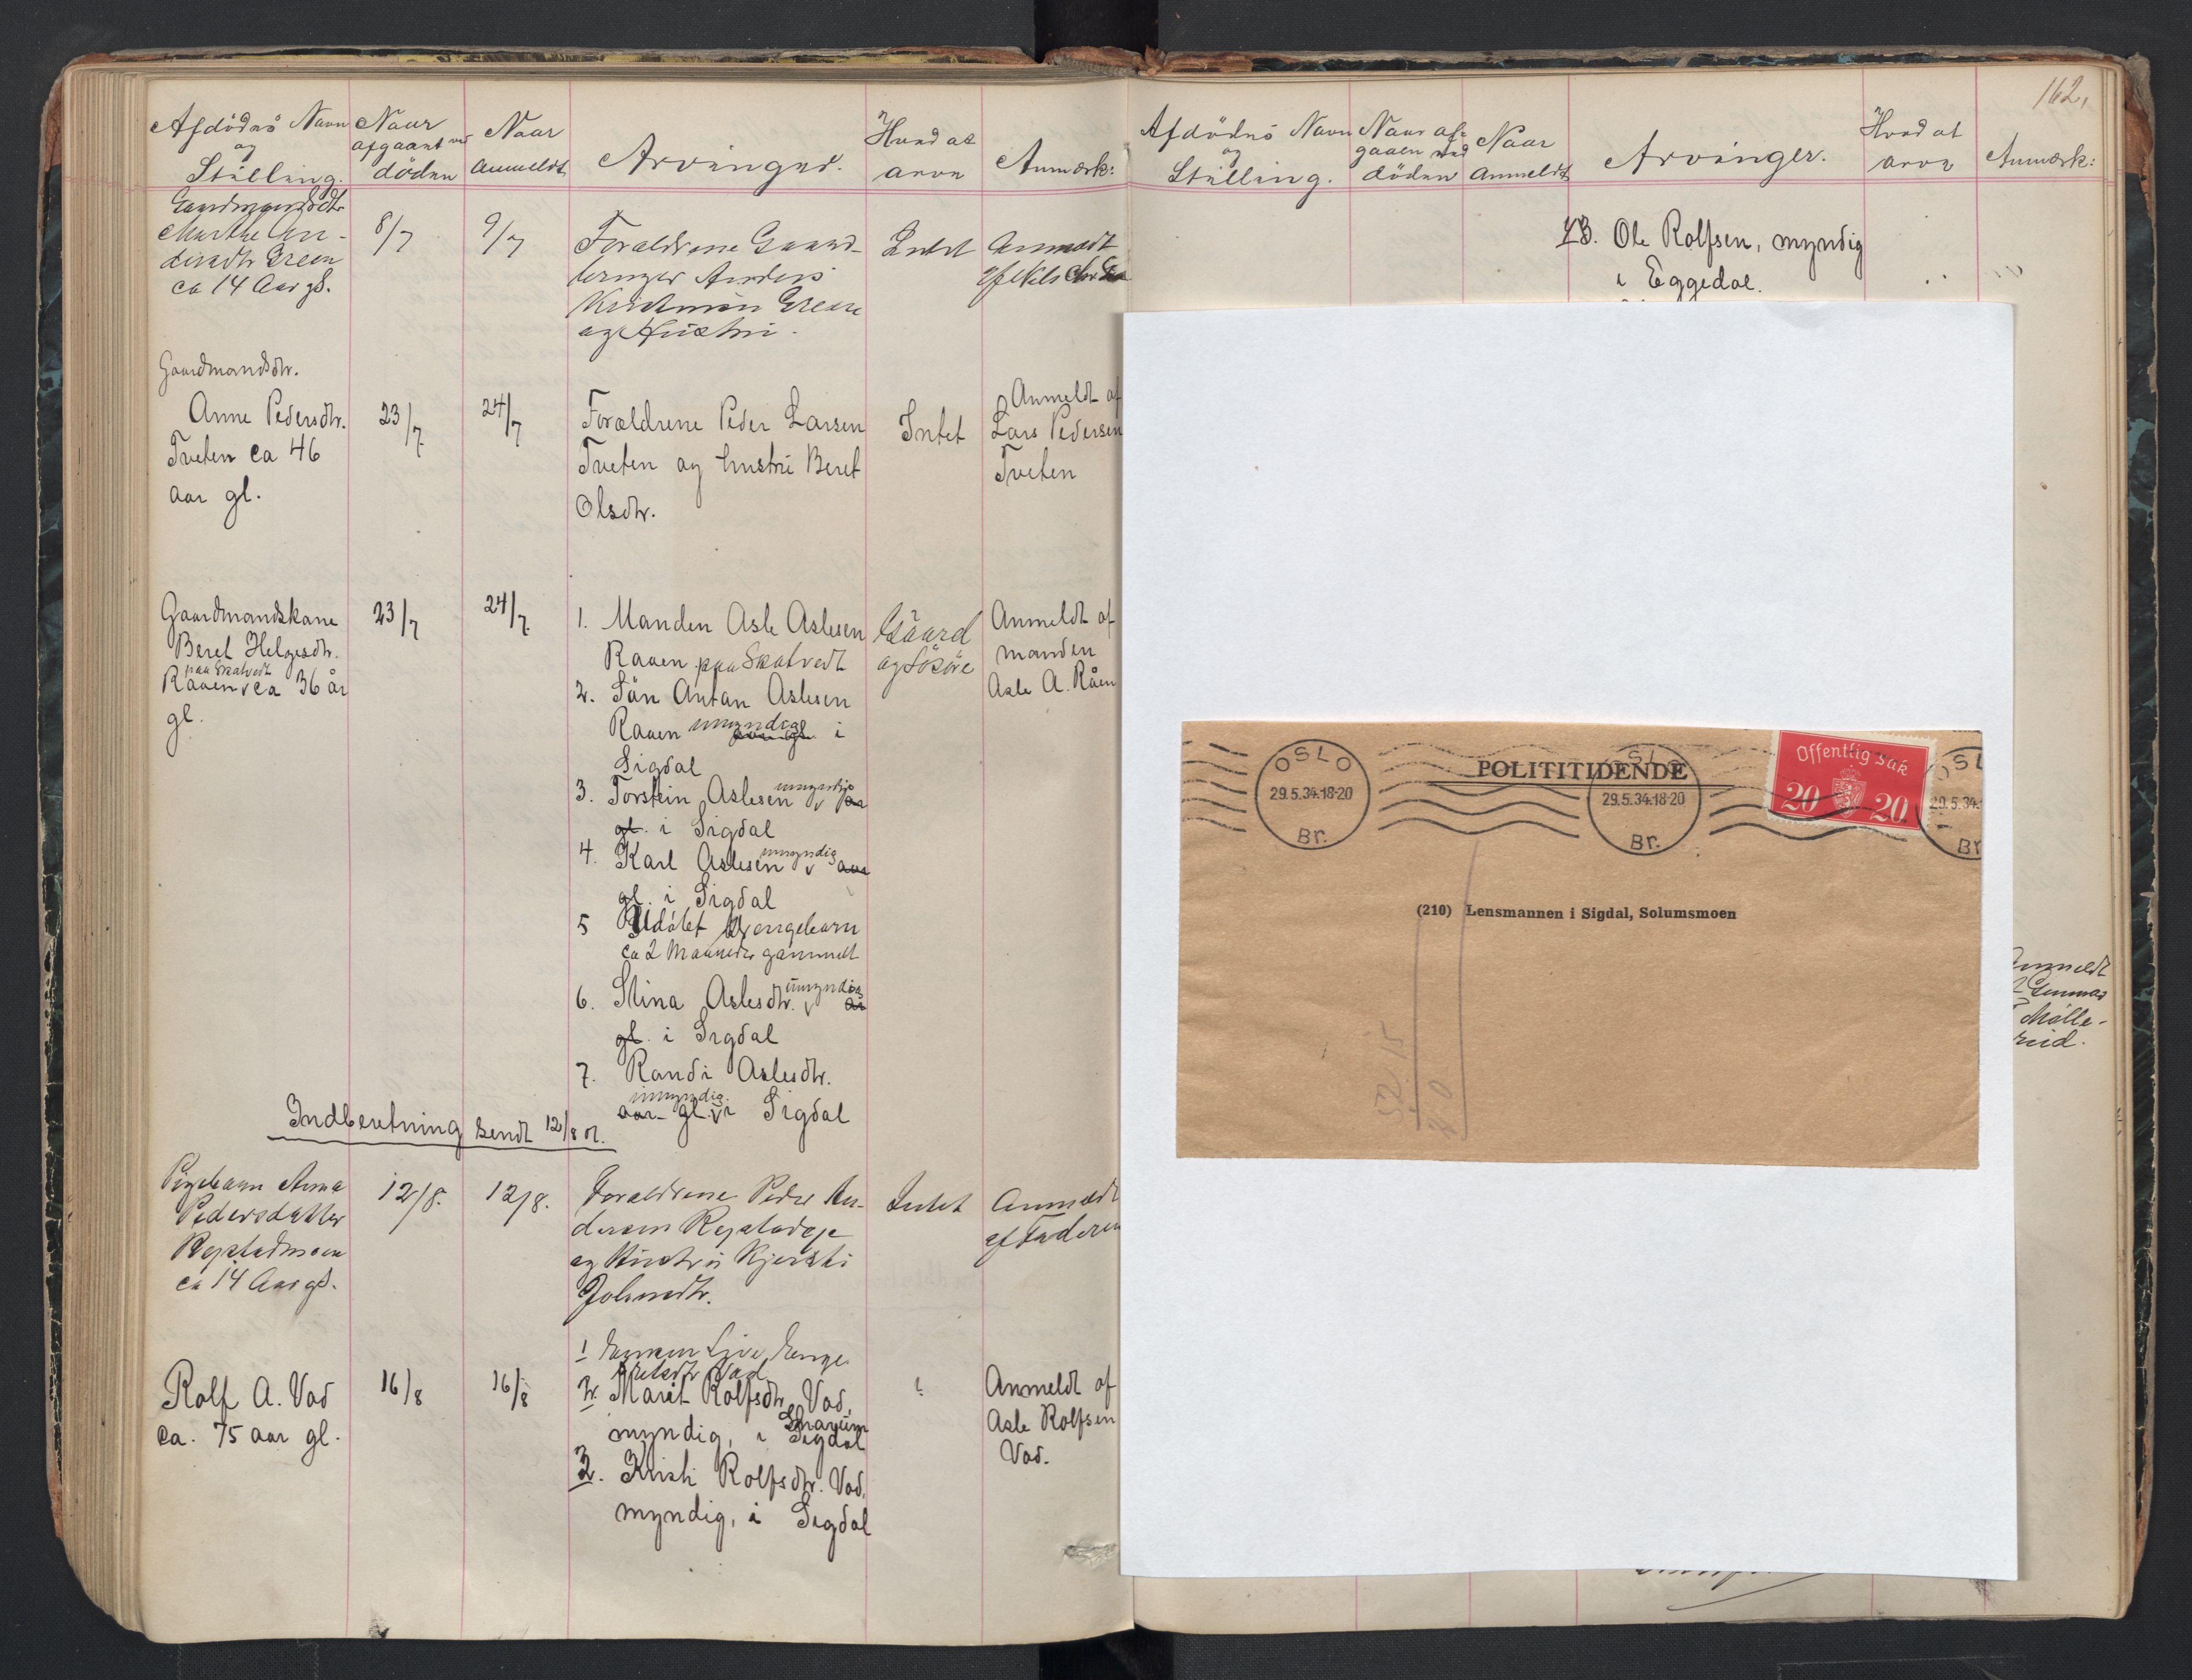 Afdödes Navn
og
Stilling.
Naar
afgaaet ved
döden
Naar
anmeldt
Arvinger.
Hvad at
arve
Anmærk:
Gaardmandsdtr.
Marthe An-
dersdtr Green
ca 14 Aar gl.
8/7
9/7
Forældrene Gaard-
bruger Anders
Green
og Hustru.
Intet
Anmeldt
af
Gaardmandsdtr.
Anne Pedersdtr.
Tveten ca 46
aar gl.
23/7
24/7
Forældrene Peder Larsen
Tveten og hustru Beret
Olsdtr.
Intet
Anmeldt af
Lars Pedersen
Tveten
Gaardmandskone
Beret Helgesdtr.
paa Skatvedt
Raaen ca 36 år
gl.
23/7
24/7
1. Manden Asle Aslesen
Raaen paa Skatvedt
2. Sön Anton Aslesen
Raaen umyndig i
Sigdal
3. Torstein Aslesen umyndig
gl. i Sigdal
4. Karl Aslesen umyndig aar
gl. i Sigdal
5 Udöbt Drengebarn
ca 2 Maaneder gammelt
6. Stina Aslesdtr. umyndig aar
gl. i Sigdal
7. Randi Aslesdtr.
umyndig
aar gl. i Sigdal
Gaard
og Lösöre
Anmeldt af
manden
Asle A. Råen
Indberetning sendt 12/8 01.
Pigebarn Anna
Pedersdatter
ca 14 Aar gl.
12/8.
12/8.
Forældrene Peder An-
dersen
og Hustru Kjersti
Intet
Anmeldt
af Faderen
Rolf A. Vad
ca. 75 aar gl.
16/8
16/8
1 Enken Live Enge-
bretsdtr Vad
2. Marit Rolfsdtr. Vad,
myndig, i Sigdal
Snarum
3. Kristi Rolfsdtr. Vad,
myndig, i Sigdal
Anmeldt af
Asle Rolfsen
Vad.
162,
Afdödes Navn
og
Stilling.
Naar af-
gaaen ved
döden
Naar
Anmeldt
Arvinger.
Hvad at
arve
Anmærk:
3. Ole Rolfsen, myndig
i Eggedal.
POLITITIDENDE
OSLO
29.5.34.18-20
Br.
OSLO
29.5.34.18-20
Br.
Offentlig sak
20 20
OSL
29.5.34.
Br
(210) Lensmannen i Sigdal, Solumsmoen
52 15
20
Anmeldt
Gunnar
Mölle-
rud.